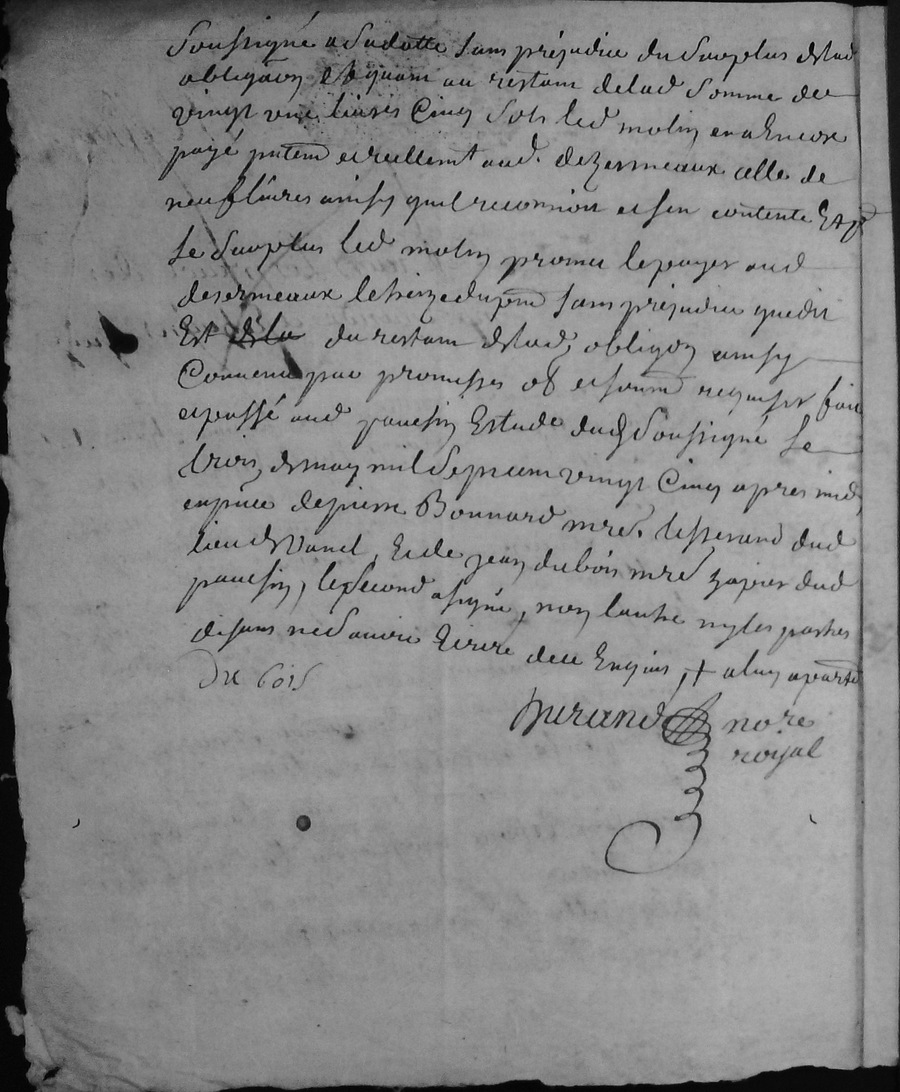 Soussigné a sa datte sans préjudice du surplus de lad
obligaon et quant au restant de lad somme de
vingt une livres cinq sols led molin en a encore
payé putem et reellemt aud. dezermeaux celle de
neuf livres ainsy quil reconnoit et sen contente et pr
le surplus led molin promet le payer aud
desermeaux le treize du pnt sans prejudice que dit
est de la du restant de lad obligon ainsy
convenu par promesses ob et soumd requises fait
et passé aud pouzin estude du not soussigné le
trois de may mil sept cent vingt cinq apres midy
en pnce de pierre Bonnard mre tisserand dud
lieu de vanel, et de jean dubois mre dud
pouzin, le second signé, non lautre ny les parties
disans ne savoir ecrire de ce enquis,
du bois
Durand no re
royal